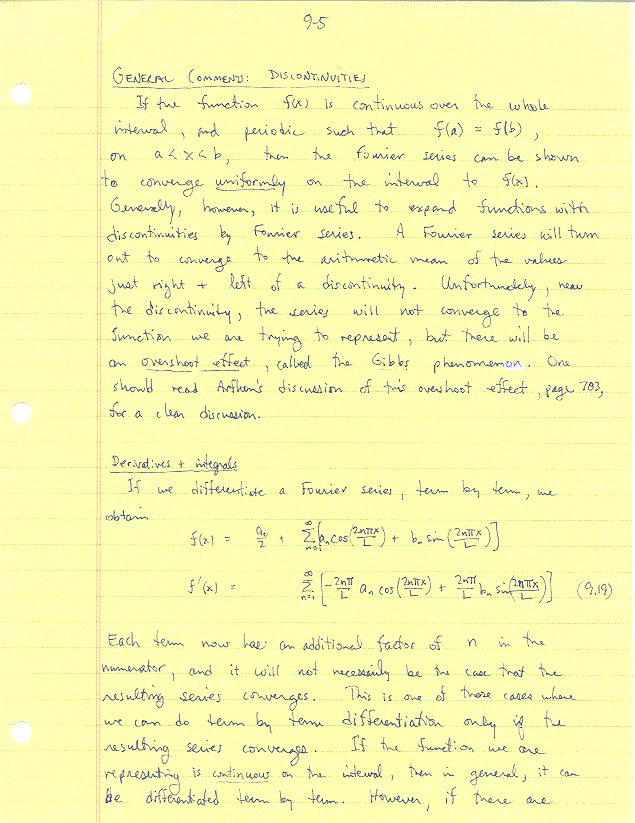 9-5
GENERAL COMMENTS: DISCONTINUITIES
If the function f(x) is continuous over the whole
interval, and periodic such that f(a) = f(b),
on a<x<b, then the Fourier series can be shown
to converge uniformly on the interval to f(x).
Generally, however, it is useful to expand functions with
discontinuities by Fourier series. A Fourier series will turn
out to converge to the arithmetic mean of the values
just right + left of a discontinuity. Unfortunately, near
the discontinuity, the series will not converge to the
function we are trying to represent, but there will be
an overshoot effect, called the Gibbs phenomenon. One
should read Arfken's discussion of this overshoot effect, page 783,
for a clear discussion.
Derivatives + integrals
If we differentiate a Fourier series, term by term, we
obtain
f(x) = a₀/2 + ∑_{n=1}^{∞} [aₙ cos(2nπx/L) + bₙ sin(2nπx/L)]
f'(x) = ∑_{n=1}^{∞} [-2nπ/L aₙ cos(2nπx/L) + 2nπ/L bₙ sin(2nπx/L)] (9.19)
Each term now has an additional factor of n in the
numerator, and it will not necessarily be the case that the
resulting series converges. This is one of those cases where
we can do term by term differentiation only if the
resulting series converges. If the function we are
representing is continuous on the interval, then in general, it can
be differentiated term by term. However, if there are